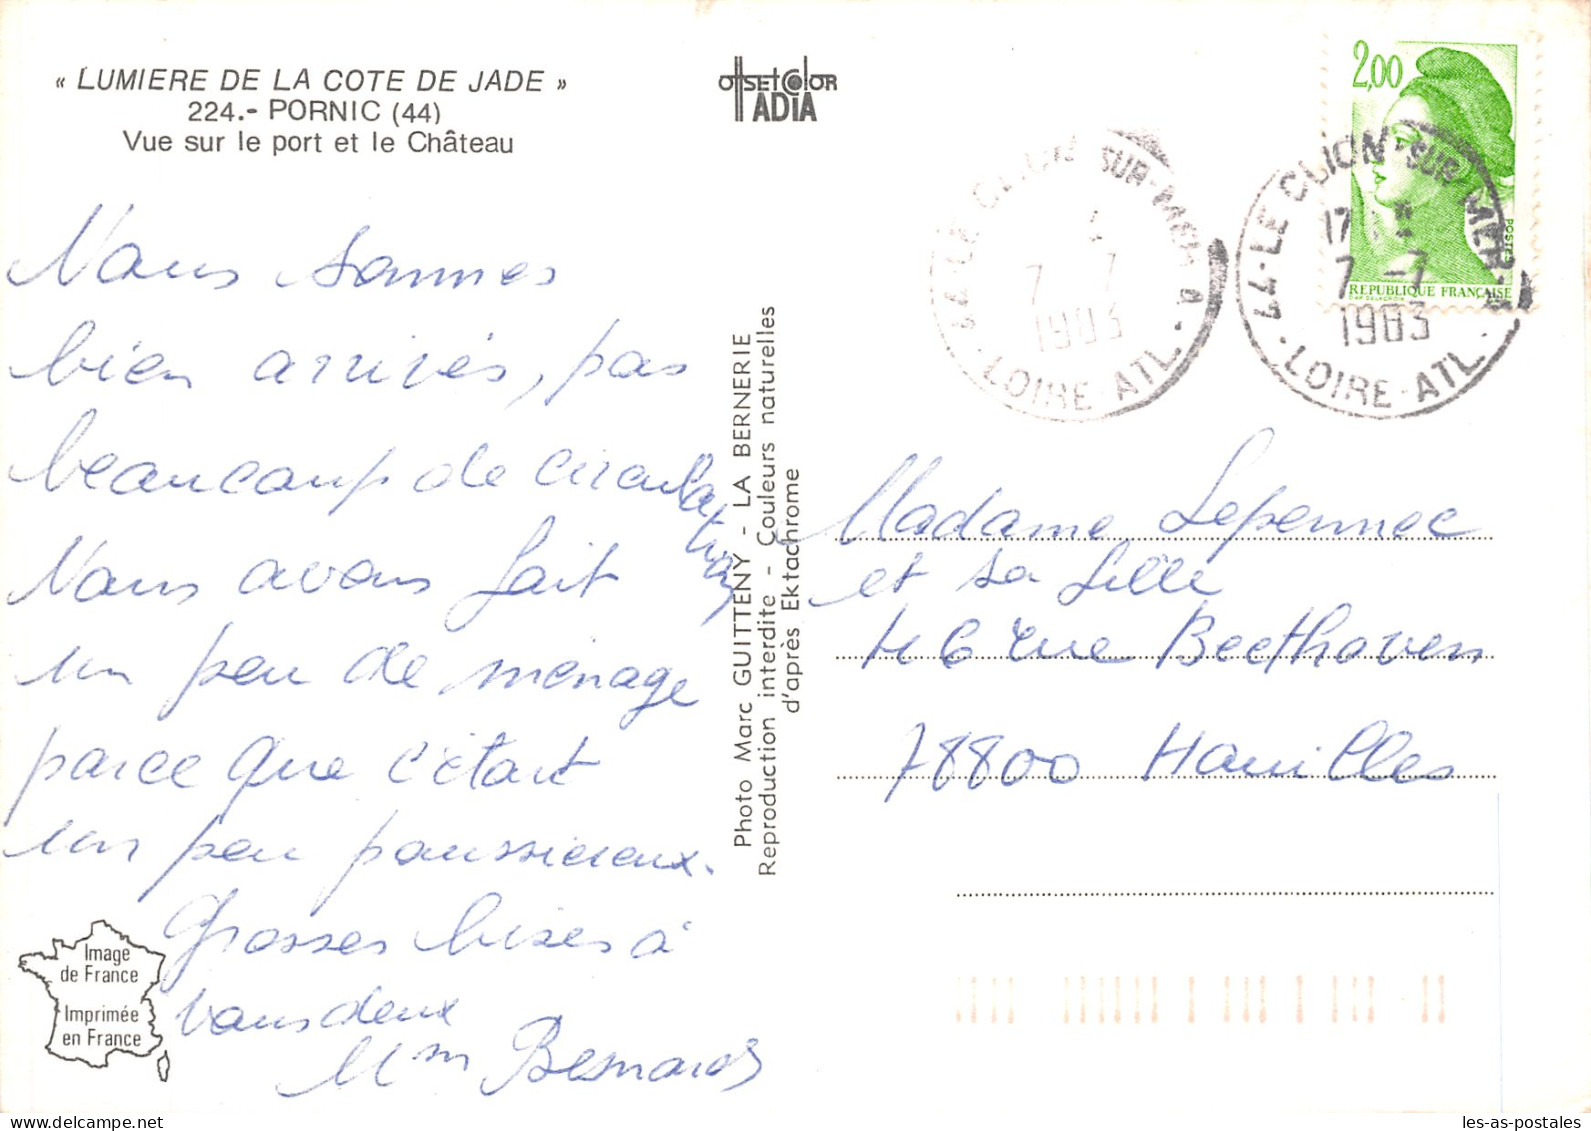 « LUMIERE DE LA COTE DE JADE »
224.- PORNIC (44)
Vue sur le port et le Château
OffSET COLOR
ADIA
Nous sommes
bien arrivés, pas
beaucoup de circulation
Nous avons fait
un peu de ménage
parce que c'était
un peu poussiéreux.
Grosses bises à
vous deux
Mm Besnard
Image
de France
Imprimée
en France
Photo Marc GUITTENY - LA BERNERIE
Reproduction interdite - Couleurs naturelles
d'après Ektachrome
2,00
POSTES
REPUBLIQUE FRANÇAISE
44-LE CLION-SUR-MER
7 -7
1983
LOIRE-ATL.
44-LE CLION-SUR-MER
17
7 -7
1983
LOIRE-ATL.
Madame Lepennec
et sa fille
46 rue Beethoven
78800 Houilles
les-as-postales